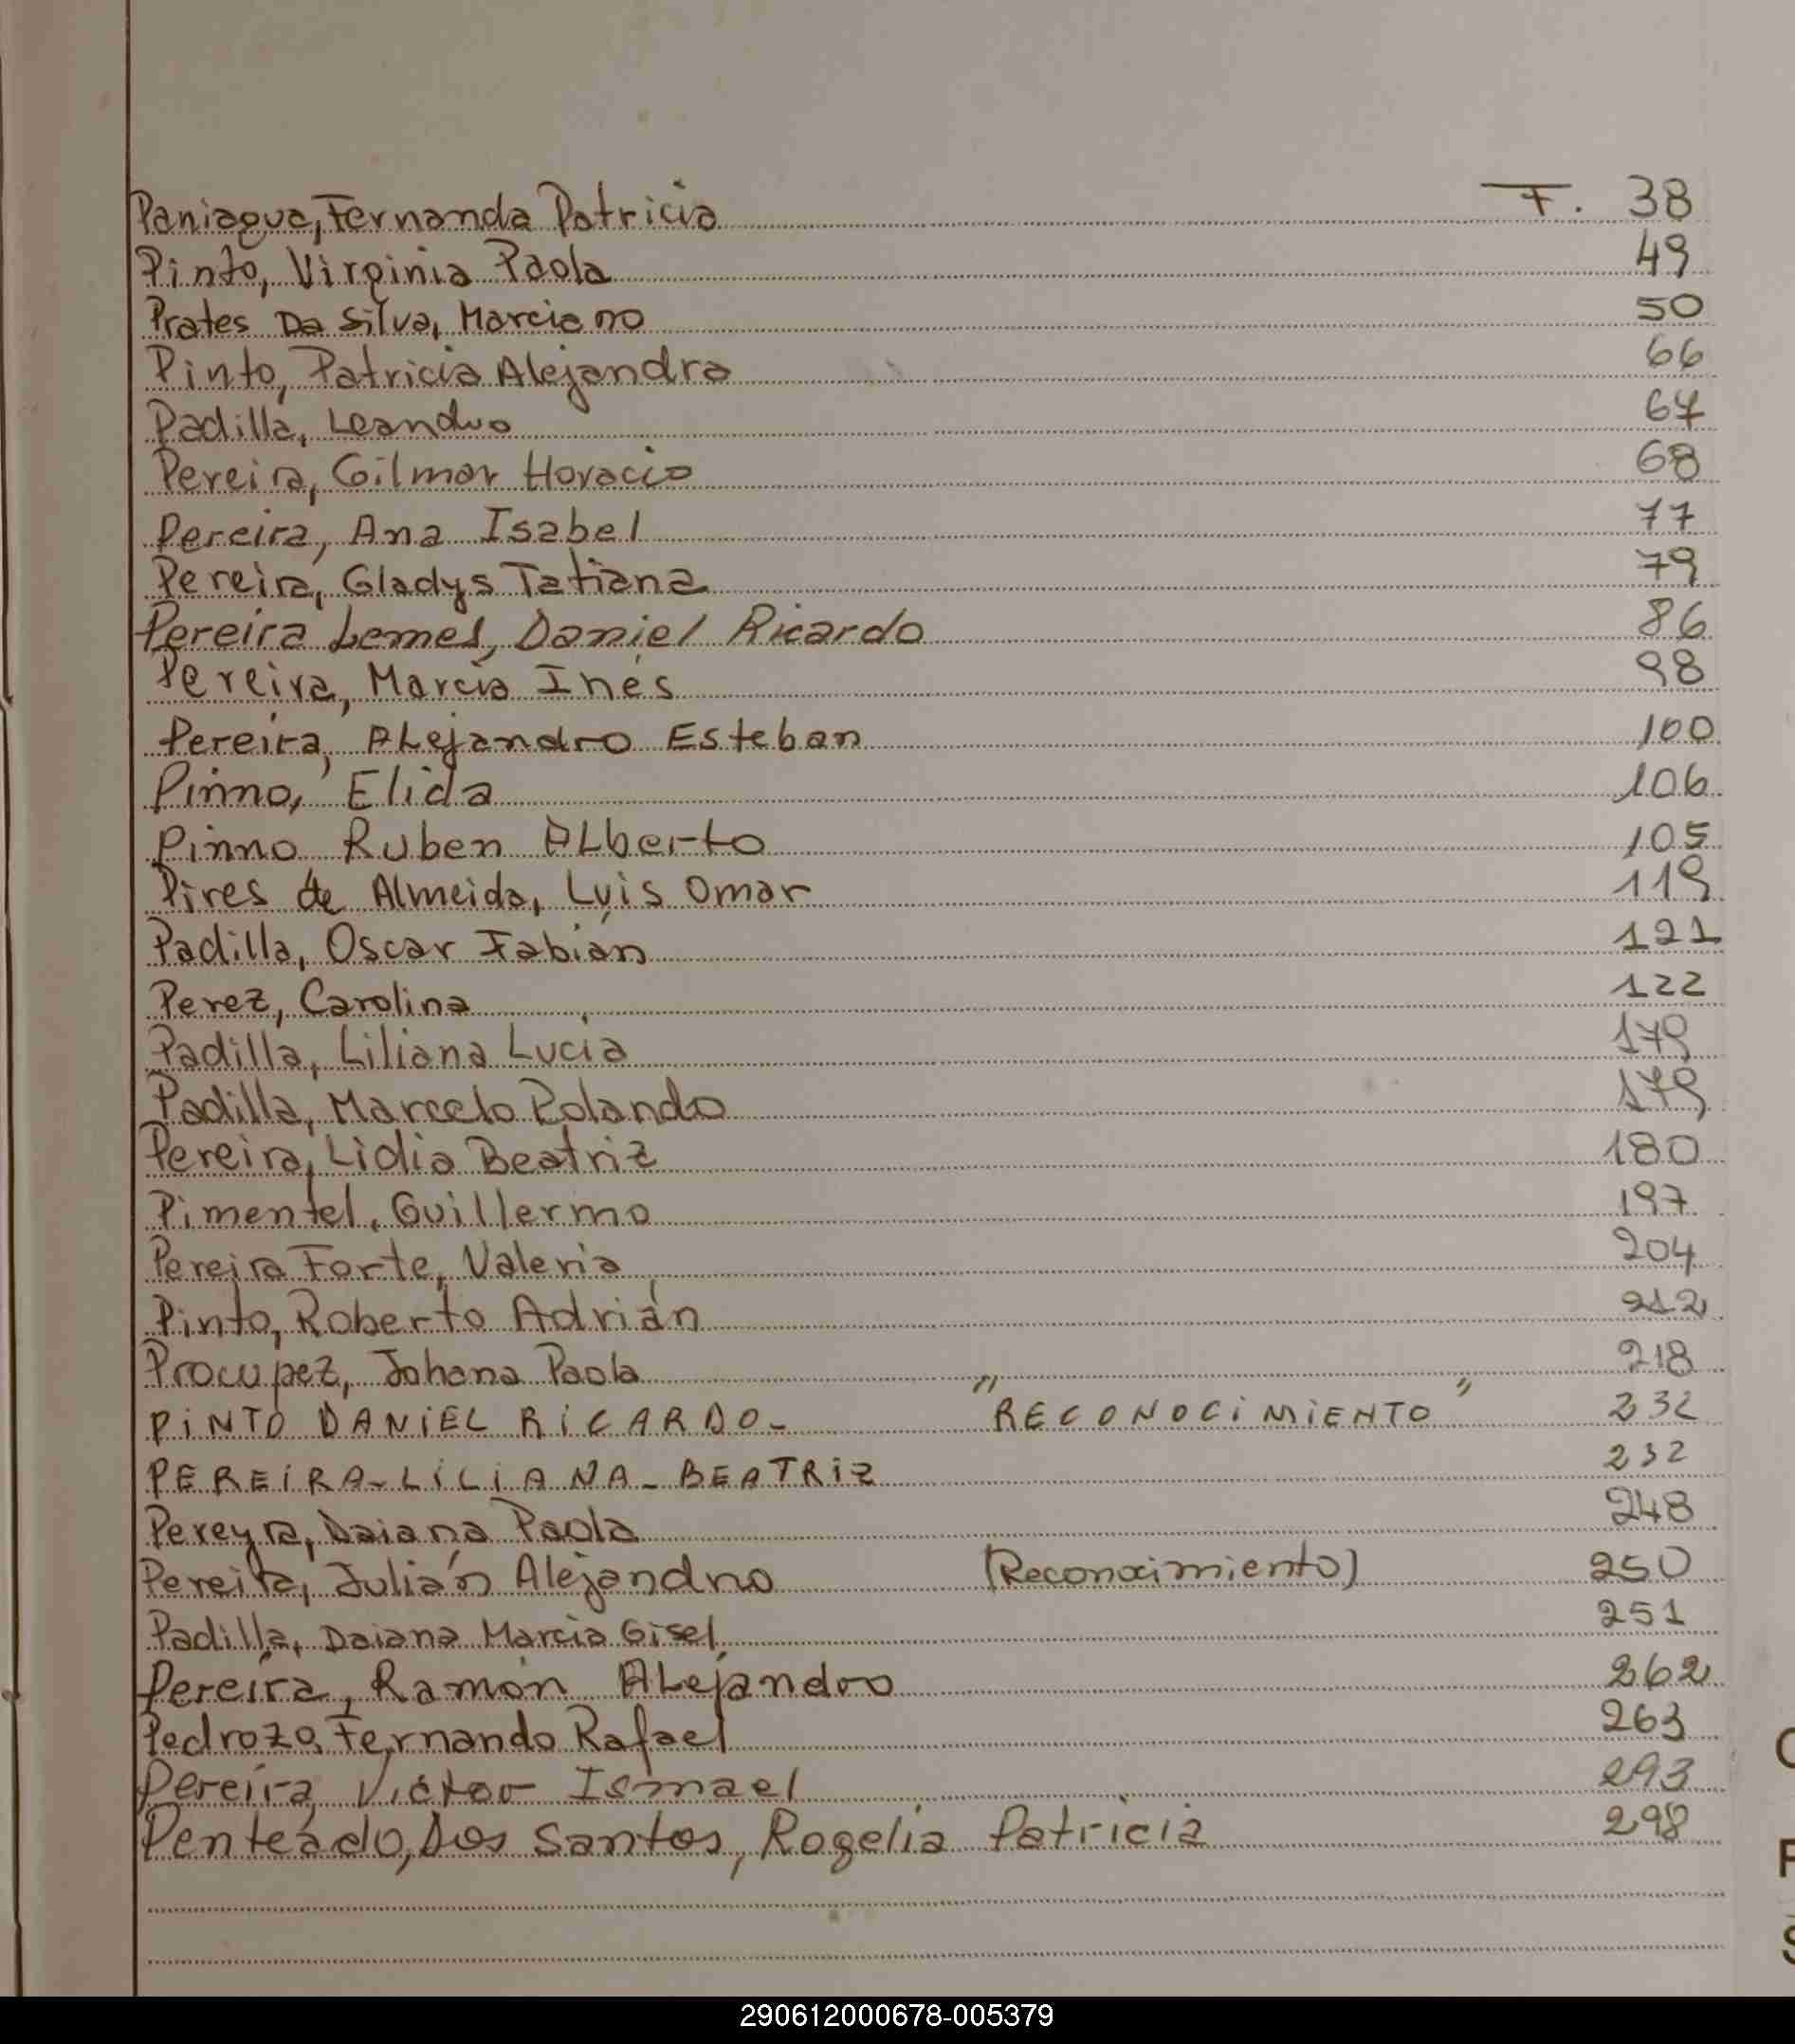 Paniagua, Fernanda Patricia F. 38
Pinto, Virginia Paola 49
Prates Da Silva, Marciano 50
Pinto, Patricia Alejandra 66
Padilla, Leandro 67
Pereira, Gilmar Horacio 68
Pereira, Ana Isabel 77
Pereira, Gladys Tatiana 79
Pereira Lemes, Daniel Ricardo 86
Pereira, Marcia Inés 98
Pereira, Alejandro Esteban 100
Pinno, Elida 106
Pinno Ruben Alberto 105
Pires de Almeida, Luis Omar 119
Padilla, Oscar Fabián 121
Perez, Carolina 122
Padilla, Liliana Lucía 179
Padilla, Marcelo Rolando 179
Pereira, Lidia Beatriz 180
Pimentel, Guillermo 197
Pereira Forte, Valeria 204
Pinto, Roberto Adrián 212
Procupez, Johana Paola 218
PINTO DANIEL RICARDO- "RECONOCIMIENTO" 232
PEREIRA-LILIANA-BEATRIZ 232
Pereyra, Daiana Paola 248
Pereira, Julián Alejandro (Reconocimiento) 250
Padilla, Daiana Marcia Gisel 251
Pereira, Ramón Alejandro 262
Pedrozo, Fernando Rafael 263
Pereira, Victor Ismael 293
Penteado, Dos Santos, Rogelia Patricia 298
290612000678-005379